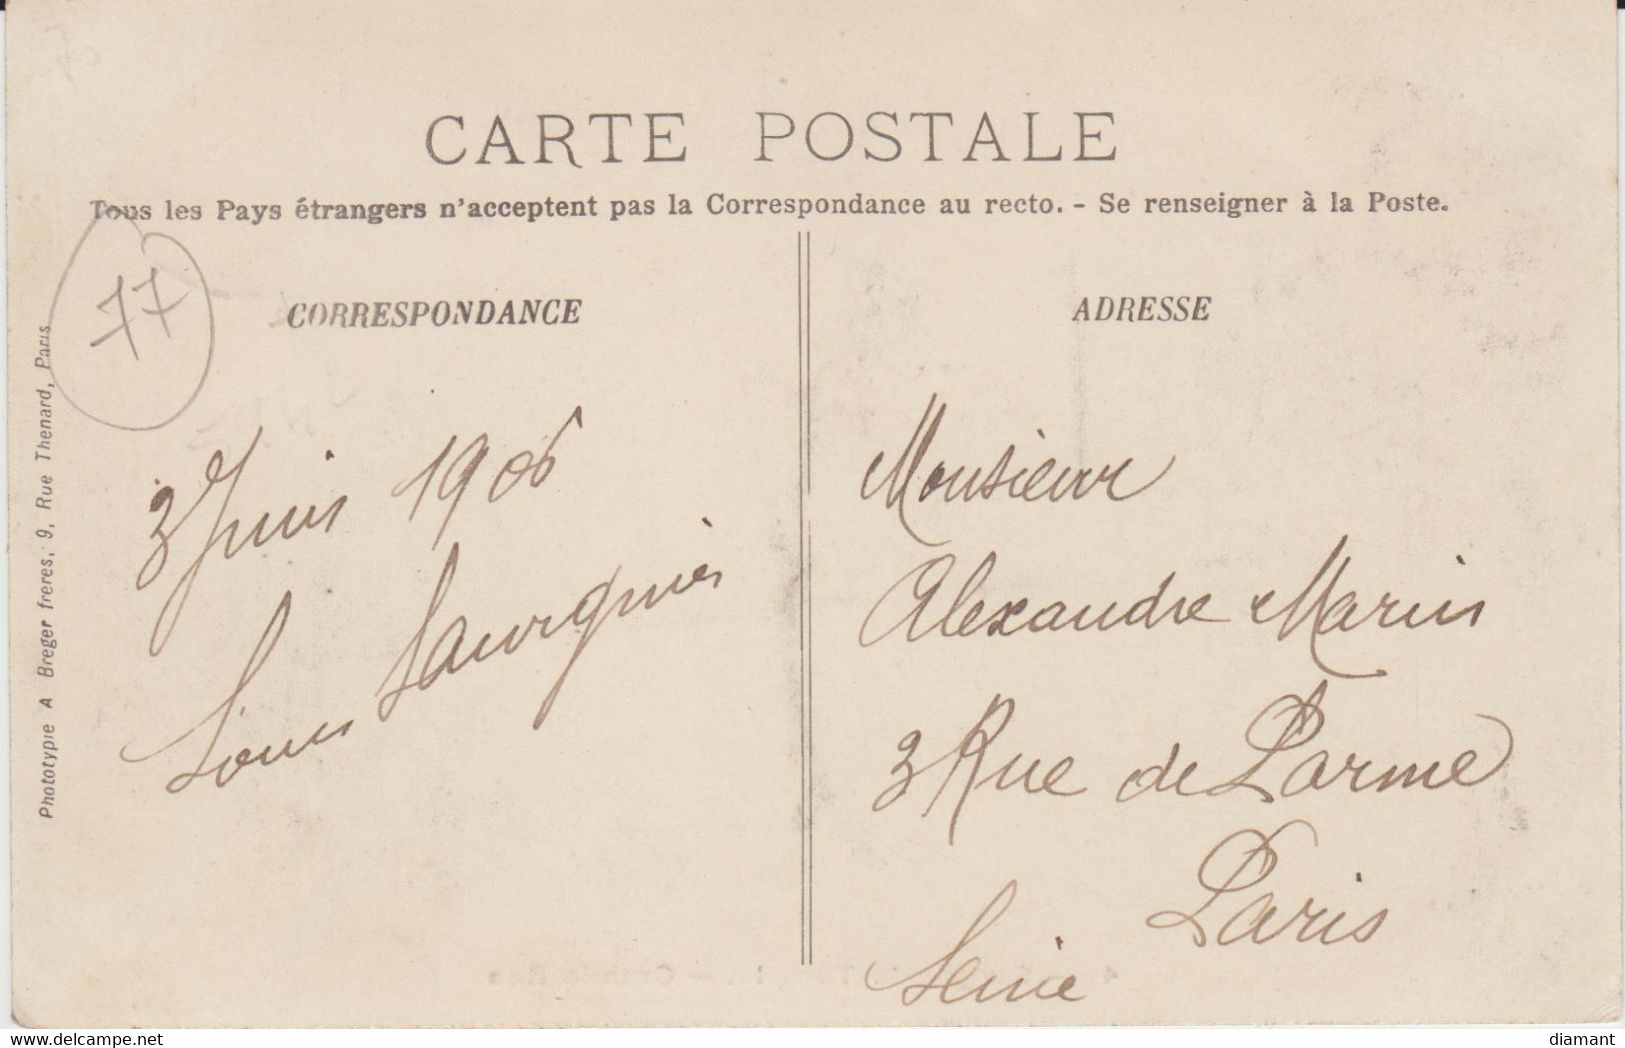 CARTE POSTALE
Tous les Pays étrangers n'acceptent pas la Correspondance au recto. - Se renseigner à la Poste.
77
CORRESPONDANCE
3 Juin 1906
Louis
Phototypie A Breger frères, 9, Rue Thenard, Paris
ADRESSE
Monsieur
Alexandre Marius
3 Rue de Parme
Paris
Seine
www.delcampe.net
diamant